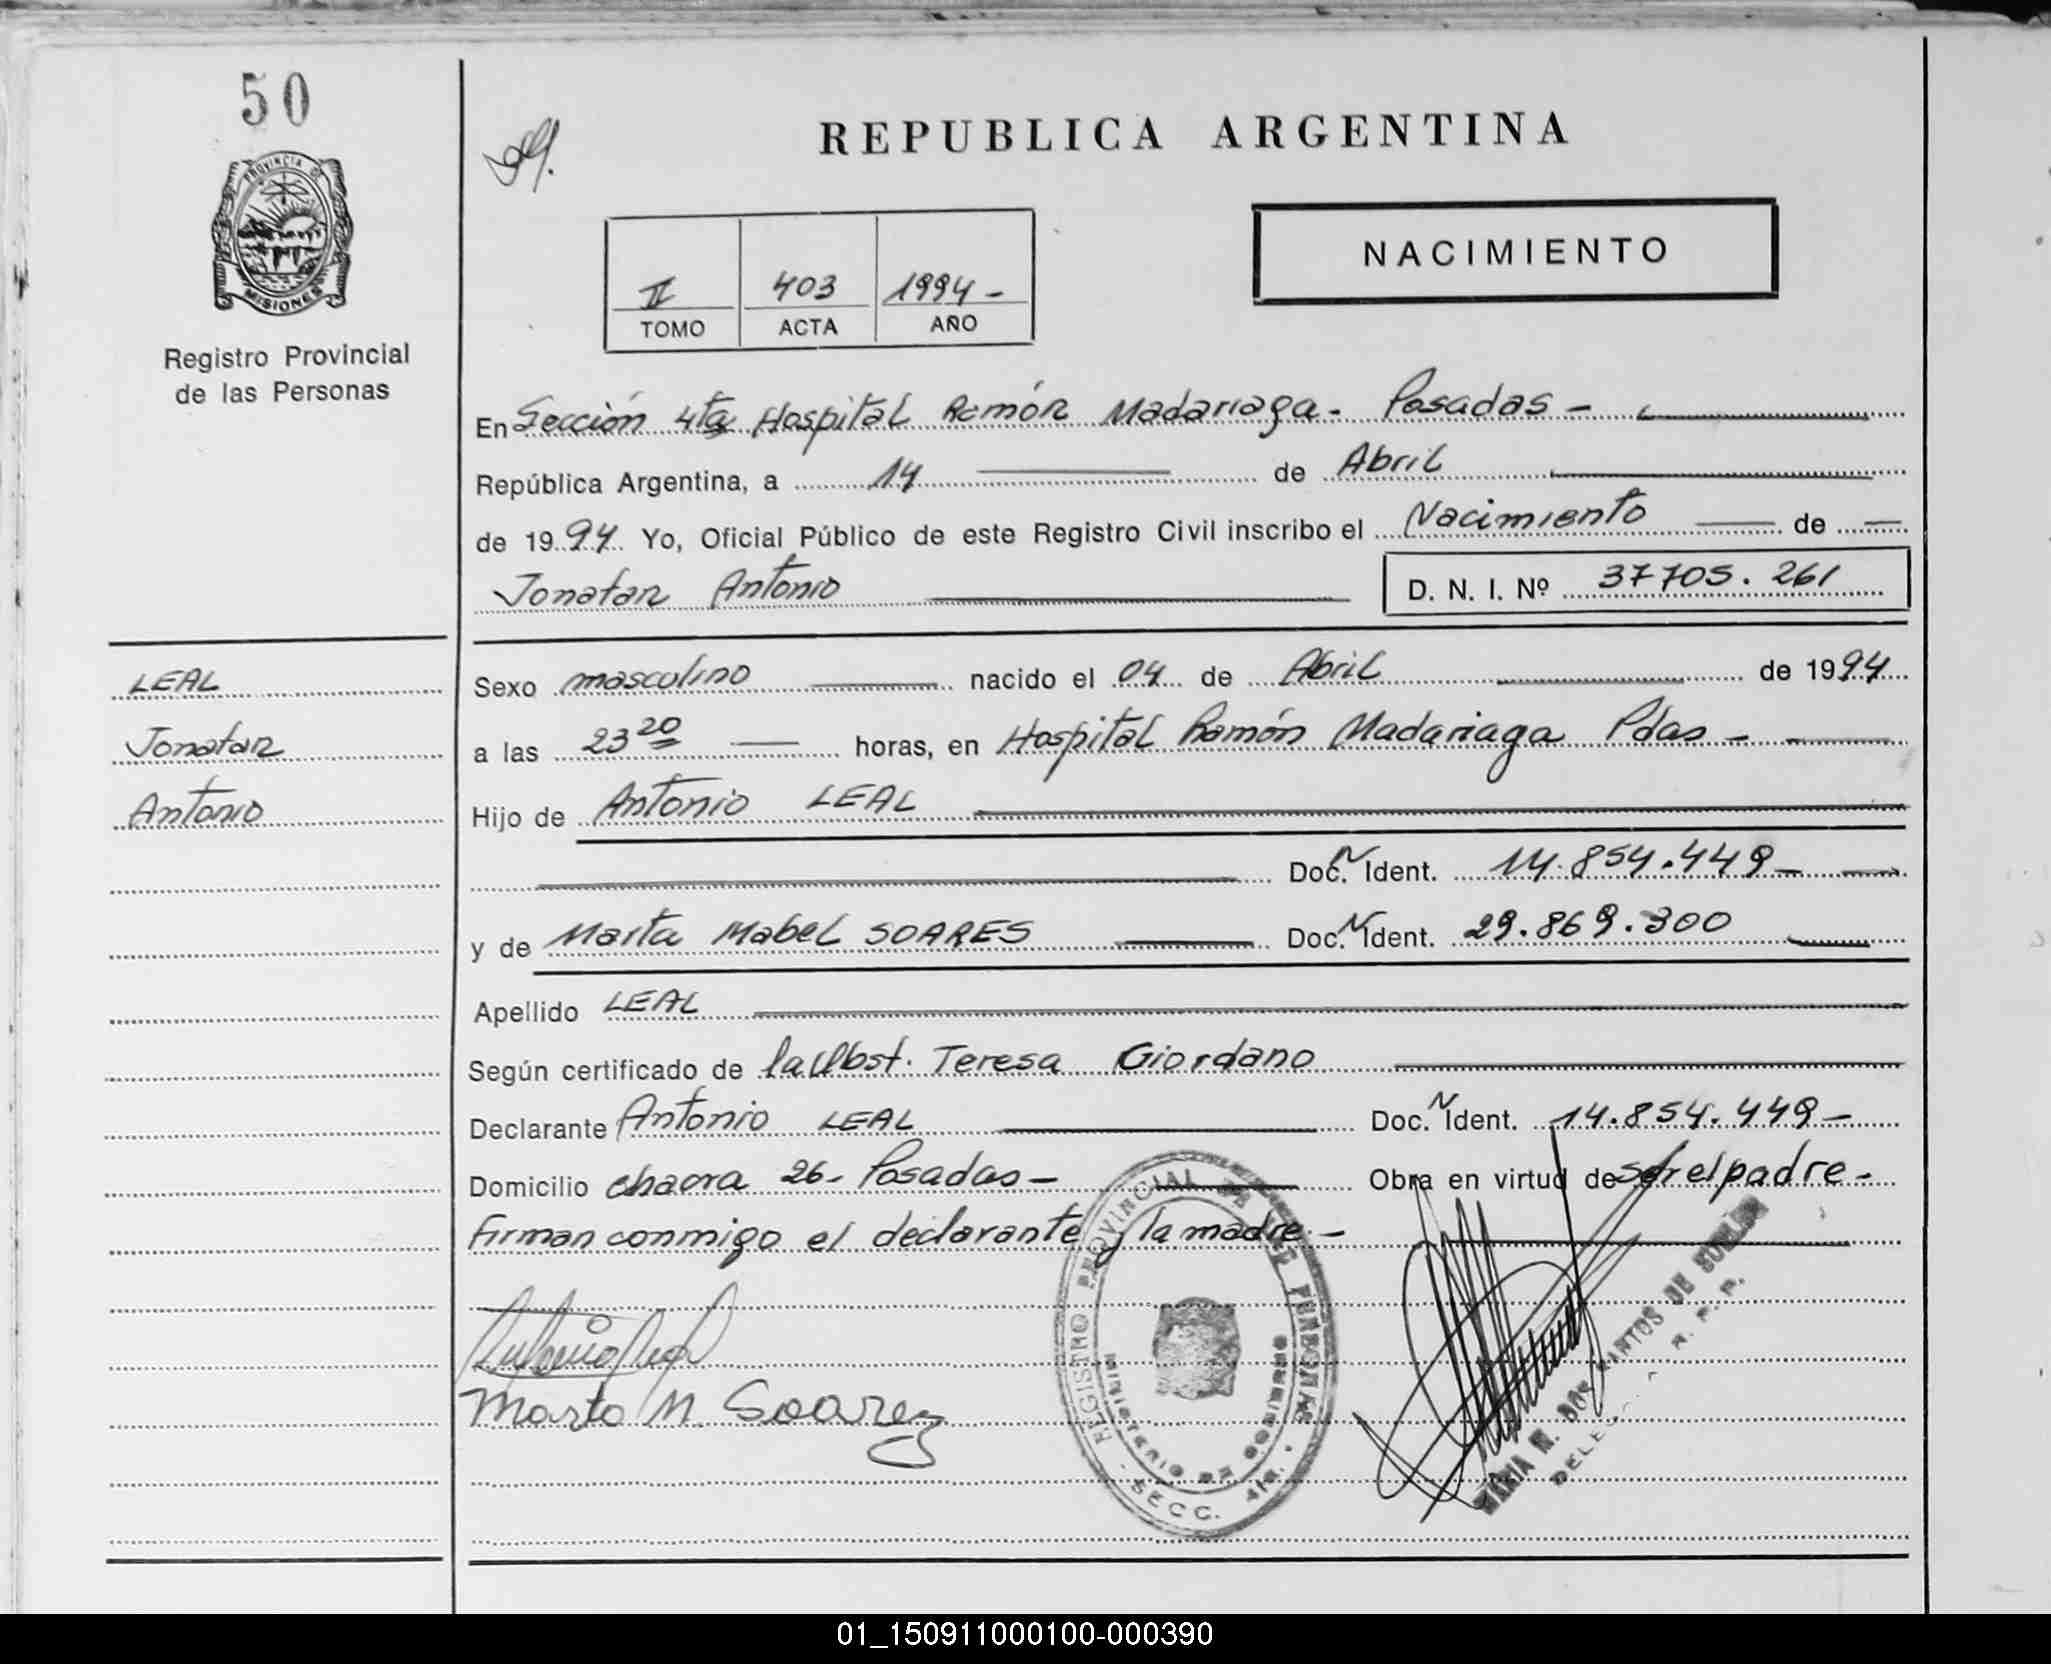 50
PROVINCIA DE
MISIONES
Registro Provincial
de las Personas
REPUBLICA ARGENTINA
NACIMIENTO
II 403 1994 -
TOMO ACTA AÑO
En Sección 4ta Hospital Ramón Madariaga - Posadas -
República Argentina, a 14 de Abril
de 1994 Yo, Oficial Público de este Registro Civil inscribo el Nacimiento de
Jonatan Antonio D. N. I. Nº 37705.261
LEAL
Jonatan
Antonio
Sexo masculino nacido el 04 de Abril de 1994
a las 23 20 horas, en Hospital Ramón Madariaga Pdas -
Hijo de Antonio LEAL
Doc. N Ident. 14.854.449 -
y de Marta Mabel SOARES Doc. N Ident. 29.869.300
Apellido LEAL
Según certificado de la Obst. Teresa Giordano
Declarante Antonio LEAL Doc. N Ident. 14.854.449 -
Domicilio chacra 26 - Posadas - Obra en virtud de ser el padre -
Firman conmigo el declarante y la madre -
Marta M. Soarez
REGISTRO PROVINCIAL DE LAS PERSONAS
MINISTERIO DE GOBIERNO
SECC. 4ta.
MARIA N. DOS SANTOS DE
R. P. P.
01_150911000100-000390